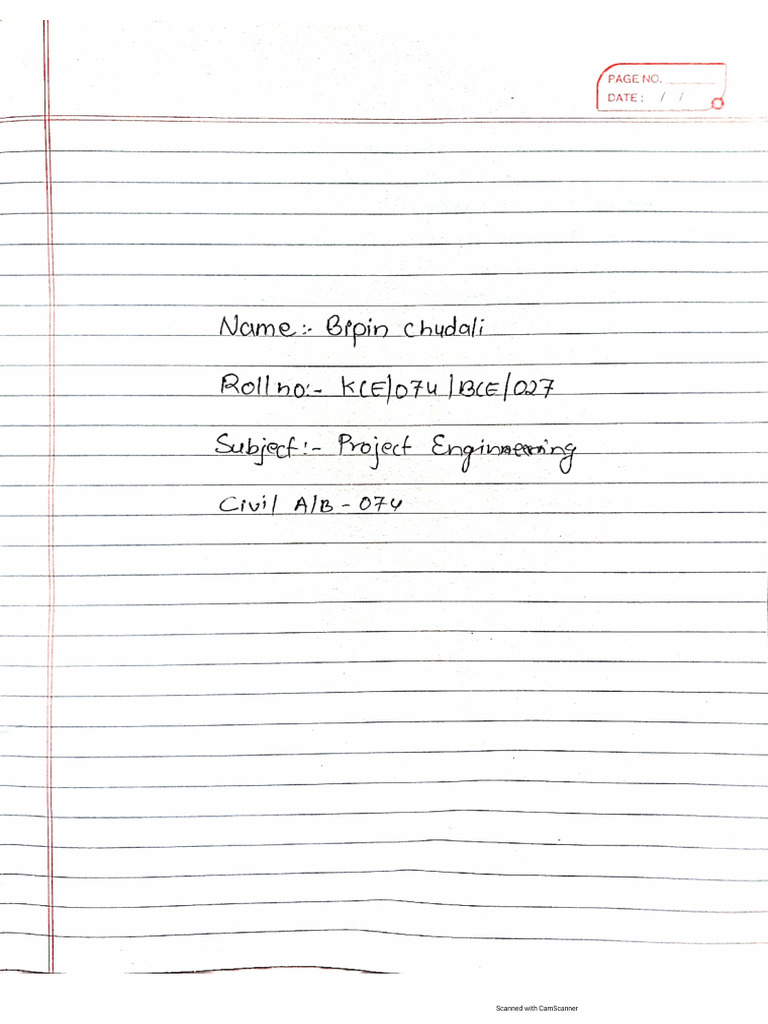 PAGE NO.
DATE: / /
Name:- Bipin chudali
Roll no:- KCE/074/BCE/027
Subject:- Project Engineering
Civil A/B - 074
Scanned with CamScanner